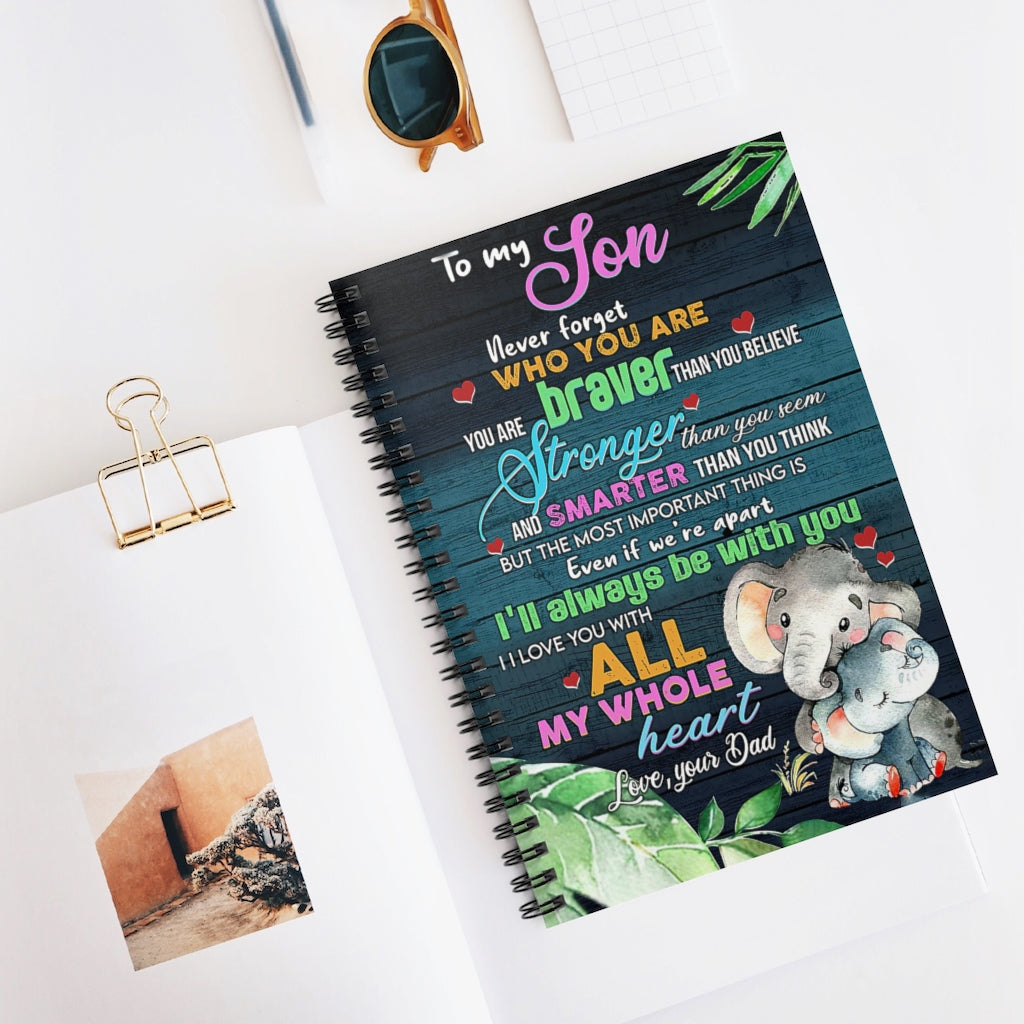 To my Son
Never forget
WHO YOU ARE
YOU ARE braver THAN YOU BELIEVE
Stronger than you seem
AND SMARTER THAN YOU THINK
BUT THE MOST IMPORTANT THING IS
Even if we're apart
I'll always be with you
I I LOVE YOU WITH
ALL
MY WHOLE
heart
Love, your Dad